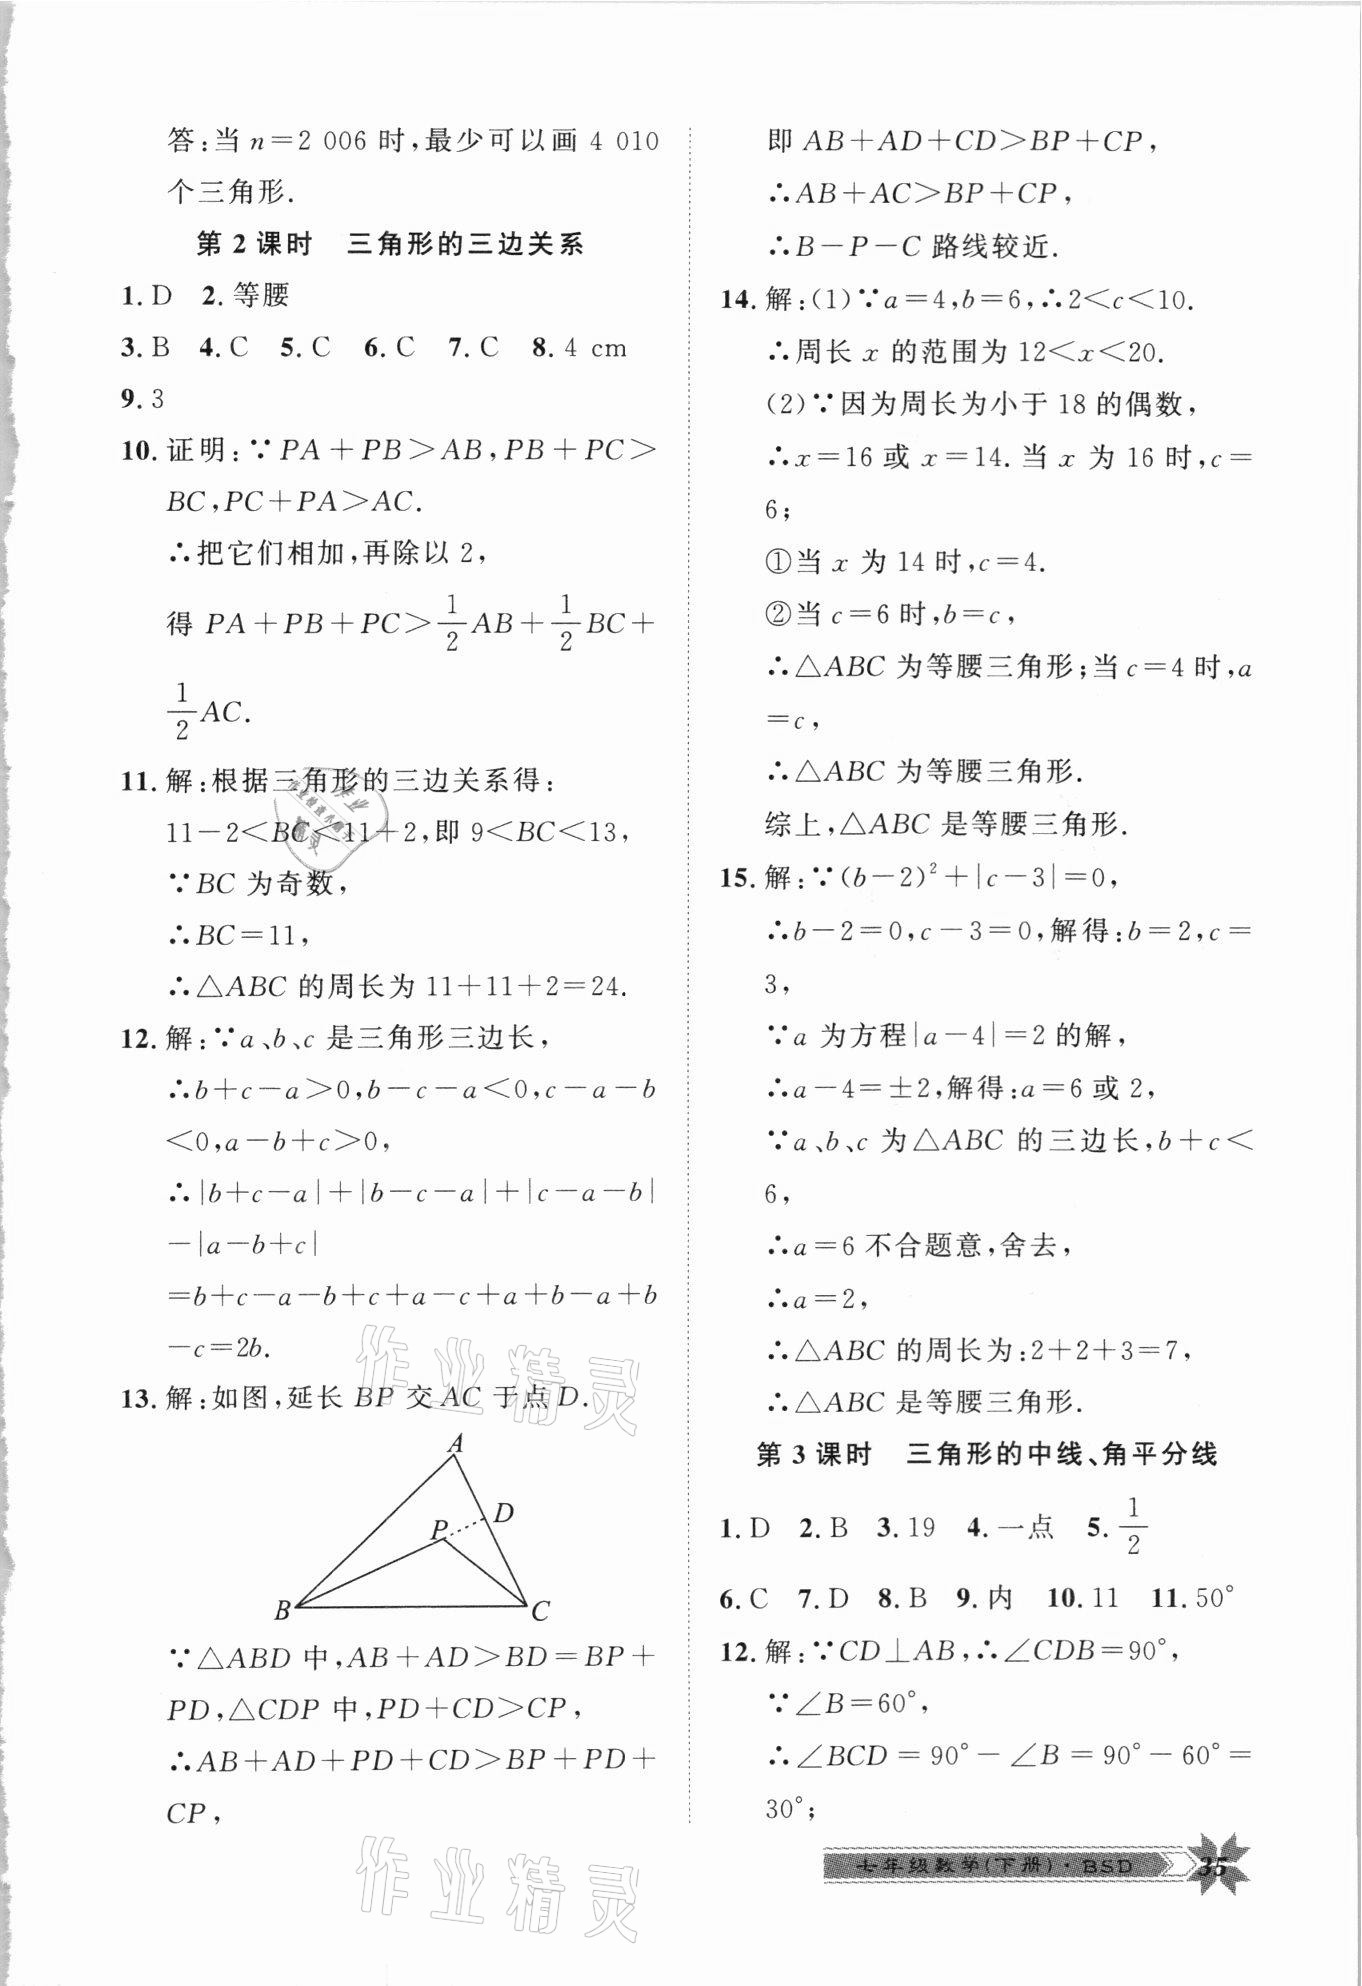 答:当 n=2 006 时,最少可以画 4 010
个三角形.
第 2 课时 三角形的三边关系
1. D 2. 等腰
3. B 4. C 5. C 6. C 7. C 8. 4 cm
9. 3
10. 证明:∵PA+PB>AB,PB+PC>
BC,PC+PA>AC.
∴把它们相加,再除以 2,
得 PA+PB+PC>1/2AB+1/2BC+
1/2AC.
11. 解:根据三角形的三边关系得:
11-2<BC<11+2,即 9<BC<13,
∵BC 为奇数,
∴BC=11,
∴△ABC 的周长为 11+11+2=24.
12. 解:∵a、b、c 是三角形三边长,
∴b+c-a>0,b-c-a<0,c-a-b
<0,a-b+c>0,
∴|b+c-a|+|b-c-a|+|c-a-b|
-|a-b+c|
=b+c-a-b+c+a-c+a+b-a+b
-c=2b.
13. 解:如图,延长 BP 交 AC 于点 D.
A
D
P
B
C
∵△ABD 中,AB+AD>BD=BP+
PD,△CDP 中,PD+CD>CP,
∴AB+AD+PD+CD>BP+PD+
CP,
即 AB+AD+CD>BP+CP,
∴AB+AC>BP+CP,
∴B-P-C 路线较近.
14. 解:(1)∵a=4,b=6,∴2<c<10.
∴周长 x 的范围为 12<x<20.
(2)∵因为周长为小于 18 的偶数,
∴x=16 或 x=14. 当 x 为 16 时,c=
6;
①当 x 为 14 时,c=4.
②当 c=6 时,b=c,
∴△ABC 为等腰三角形;当 c=4 时,a
=c,
∴△ABC 为等腰三角形.
综上,△ABC 是等腰三角形.
15. 解:∵(b-2)²+|c-3|=0,
∴b-2=0,c-3=0,解得:b=2,c=
3,
∵a 为方程|a-4|=2 的解,
∴a-4=±2,解得:a=6 或 2,
∵a、b、c 为△ABC 的三边长,b+c<
6,
∴a=6 不合题意,舍去,
∴a=2,
∴△ABC 的周长为:2+2+3=7,
∴△ABC 是等腰三角形.
第 3 课时 三角形的中线、角平分线
1. D 2. B 3. 19 4. 一点 5. 1/2
6. C 7. D 8. B 9. 内 10. 11 11. 50°
12. 解:∵CD⊥AB,∴∠CDB=90°,
∵∠B=60°,
∴∠BCD=90°-∠B=90°-60°=
30°;
七年级数学(下册)·BSD 35
作业精灵
作业精灵